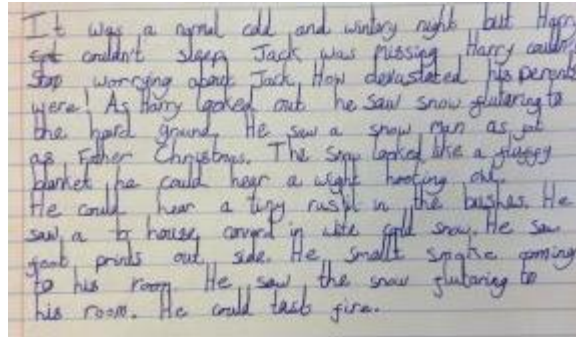 It was a normal cold and wintery night but Harry
couldn't sleep Jack was missing Harry couldn't
stop worrying about Jack. How devastated his perents
were! As Harry looked out he saw snow flutering to
the hard ground. He saw a snow man as fat
as Father Christmas. The snow looked like a fluffy
blanket he could hear a wight hooting owl.
He could hear a tiny rustl in the bushes. He
saw a house coverd in wite cold snow. He saw
foot prints out side. He smallt smoke coming
to his room He saw the snow flutaring to
his room. He could tast fire.